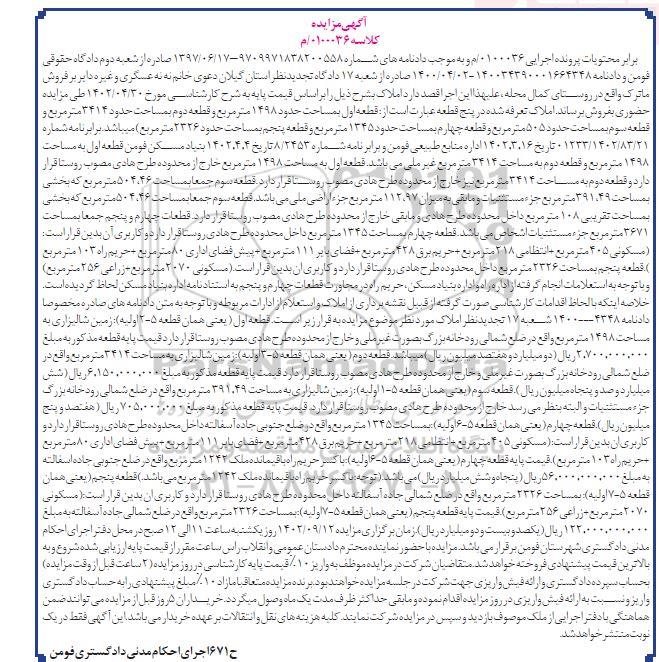 آگهی مزایده
کلاسه ۰۱۰۰۰۳۶/م
برابر محتویات پرونده اجرایی ۰۱۰۰۰۳۶/م و به موجب دادنامه های شماره ۹۷۰۹۹۷۱۸۳۸۲۰۰۵۵۸-۱۳۹۷/۰۶/۱۷ صادره از شعبه دوم دادگاه حقوقی
فومن و دادنامه ۱۴۰۰۳۴۳۹۰۰۰۱۶۶۴۳۴۸-۱۴۰۰/۰۴/۰۲ صادره از شعبه ۱۷ دادگاه تجدیدنظر استان گیلان دعوی خانم ننه نه عسگری و غیره دایر بر فروش
ماترک واقع در روستای کمال محله، علیهذا این اجرا قصد دارد املاک بشرح ذیل را بر اساس قیمت پایه به شرح کارشناسی مورخ ۱۴۰۲/۰۴/۳۰ طی مزایده
حضوری بفروش برساند. املاک تعرفه شده در پنج قطعه عبارت است از: قطعه اول بمساحت حدود ۱۴۹۸ مترمربع و قطعه دوم بمساحت حدود ۳۴۱۴ مترمربع و
قطعه سوم بمساحت حدود ۵۰۵ مترمربع و قطعه چهارم بمساحت حدود ۱۳۴۵ مترمربع و قطعه پنجم بمساحت حدود ۲۳۲۶ مترمربع) میباشد. برابر نامه شماره
۱۴۰۲/۸۳/۲۱/۰۱۲۳۳ تاریخ ۱۴۰۲,۳,۱۶ اداره منابع طبیعی فومن و برابر نامه شماره ۸/۲۴۵۳ تاریخ ۱۴۰۲,۴,۴ بنیاد مسکن فومن قطعه اول به مساحت
۱۴۹۸ مترمربع و قطعه دوم به مساحت ۳۴۱۴ مترمربع غیر ملی می باشد. قطعه اول به مساحت ۱۴۹۸ مترمربع خارج از محدوده طرح هادی مصوب روستا قرار
دارد و قطعه دوم به مساحت ۳۴۱۴ مترمربع نیز خارج از محدوده طرح هادی مصوب روستا قرار دارد. قطعه سوم جمعا بمساحت ۵۰۴,۴۶ مترمربع که بخشی
بمساحت ۳۹۱,۴۹ مترمربع جزء مستثنیات و مابقی به میزان ۱۱۲,۹۷ مترمربع جزء اراضی ملی می باشد. قطعه سوم جمعا بمساحت ۵۰۴,۴۶ مترمربع که بخشی
بمساحت تقریبی ۱۰۸ مترمربع داخل محدوده طرح هادی و مابقی خارج از محدوده طرح هادی مصوب روستا قرار دارد. قطعات چهارم و پنجم جمعا بمساحت
۳۶۷۱ مترمربع جزء مستثنیات اشخاص می باشد. قطعه چهارم بمساحت ۱۳۴۵ مترمربع داخل محدوده طرح هادی روستا قرار دارد و کاربری آن بدین قرار است:
(مسکونی ۴۰۵ مترمربع +انتظامی ۲۱۸ مترمربع +حریم برق ۴۲۸ مترمربع +فضای بایر ۱۱۱ مترمربع +پیش فضای اداری ۸۰ مترمربع +حریم راه ۱۰۳ مترمربع
). قطعه پنجم بمساحت ۲۳۲۶ مترمربع داخل محدوده طرح هادی روستا قرار دارد و کاربری آن بدین قرار است. (مسکونی ۲۰۷۰ مترمربع+زراعی ۲۵۶ مترمربع)
و با توجه به استعلامات انجام گرفته از اداره راه و اداره بنیاد مسکن، حریم راه در مجاورت قطعات چهارم و پنجم به استنادنامه اداره بنیاد مسکن لحاظ گردیده است.
خلاصه اینکه با لحاظ اقدامات کارشناسی صورت گرفته از قبیل نقشه برداری از املاک و استعلام از ادارات مربوطه و با توجه به متن دادنامه های صادره مخصوصا
دادنامه ۴۳۴۸---۱۴۰۰ شعبه ۱۷ تجدیدنظر املاک مورد نظر موضوع مزایده به قرار زیر است. قطعه اول (یعنی همان قطعه ۵-۲ اولیه): زمین شالیزاری به
مساحت ۱۴۹۸ مترمربع واقع در ضلع شمالی رودخانه بزرگ بصورت غیر ملی و خارج از محدوده طرح هادی مصوب روستا قرار دارد قیمت پایه قطعه مذکور به مبلغ
۲,۷۰۰,۰۰۰,۰۰۰ ریال (دو میلیارد و هفتصد میلیون ریال) میباشد. قطعه دوم (یعنی همان قطعه ۵-۳ اولیه): زمین شالیزاری بمساحت ۳۴۱۴ مترمربع واقع در
ضلع شمالی رودخانه بزرگ بصورت غیر ملی و خارج از محدوده طرح هادی مصوب روستا قرار دارد قیمت پایه قطعه مذکور به مبلغ ۶,۱۵۰,۰۰۰,۰۰۰ ریال (شش
میلیارد و صد و پنجاه میلیون ریال). قطعه سوم (یعنی همان قطعه ۵-۱ اولیه): زمین شالیزاری به مساحت ۳۹۱,۴۹ مترمربع واقع در ضلع شمالی رودخانه بزرگ
جزء مستثنیات و البته بنظر می رسد خارج از محدوده طرح هادی مصوب روستا قرار دارد. قیمت پایه قطعه مذکور به مبلغ ۷۰۵,۰۰۰,۰۰۰ ریال (هفتصد و پنج
میلیون ریال). قطعه چهارم (یعنی همان قطعه ۵-۶ اولیه): بمساحت ۱۳۴۵ مترمربع واقع در ضلع جنوبی جاده آسفالته داخل محدوده طرح هادی روستا قرار دارد و
کاربری ان بدین قرار است: (مسکونی ۴۰۵ مترمربع +انتظامی ۲۱۸ مترمربع +حریم برق ۴۲۸ مترمربع +فضای بایر ۱۱۱ مترمربع +پیش فضای اداری ۸۰ مترمربع
+حریم راه ۱۰۳ مترمربع). قیمت پایه قطعه چهارم (یعنی همان قطعه ۵-۶ اولیه): با کسر حریم راه باقیمانده ملک ۱۲۴۲ مترمربع واقع در ضلع جنوبی جاده اسفالته
به مبلغ ۵۶,۰۰۰,۰۰۰,۰۰۰ ریال (پنجاه و شش میلیارد ریال) می باشد. (توجه: با کسر حریم راه باقیمانده ملک ۱۲۴۲ مترمربع می باشد.) قطعه پنجم (یعنی همان
قطعه ۵-۷ اولیه): بمساحت ۲۳۲۶ مترمربع واقع در ضلع شمالی جاده آسفالته داخل محدوده طرح هادی روستا قرار دارد و کاربری ان بدین قرار است: (مسکونی
۲۰۷۰ مترمربع+زراعی ۲۵۶ مترمربع). قیمت پایه قطعه پنجم (یعنی همان قطعه ۵-۷ اولیه): بمساحت ۲۳۲۶ مترمربع واقع در ضلع شمالی جاده آسفالته به مبلغ
۱۲۲,۰۰۰,۰۰۰,۰۰۰ ریال (یکصد و بیست و دو میلیارد ریال). زمان برگزاری مزایده ۱۴۰۲/۰۹/۱۲ روز یکشنبه ساعت ۱۱ الی ۱۲ صبح در محل دفتر اجرای احکام
مدنی دادگستری شهرستان فومن برقرار می باشد. مزایده با حضور نماینده محترم دادستان عمومی و انقلاب راس ساعت مقرر از قیمت پایه ارزیابی شده شروع و به
بالاترین قیمت پیشنهادی فروخته خواهد شد. متقاضیان شرکت در مزایده موظف به واریز ۱۰٪ قیمت پایه کارشناسی در روز مزایده (۲ ساعت قبل از وقت مزایده)
بحساب سپرده دادگستری و ارائه فیش واریزی جهت شرکت در جلسه مزایده خواهند بود. برنده مزایده متعاقبا مازاد ۱۰٪ مبلغ پیشنهادی را به حساب دادگستری
واریز و نسبت به ارائه فیش واریزی در روز مزایده اقدام نموده و مابقی حداکثر ظرف مدت یک ماه وصول میگردد. خریداران ۵ روز قبل از مزایده می توانند ضمن
هماهنگی با دفتر اجرا از ملک موصوف بازدید و سپس در مزایده شرکت نمایند. کلیه هزینه های نقل و انتقالات بر عهده خریدار می باشد. این آگهی فقط در یک
نوبت منتشر خواهد شد.
ح۶۷۱ اجرای احکام مدنی دادگستری فومن